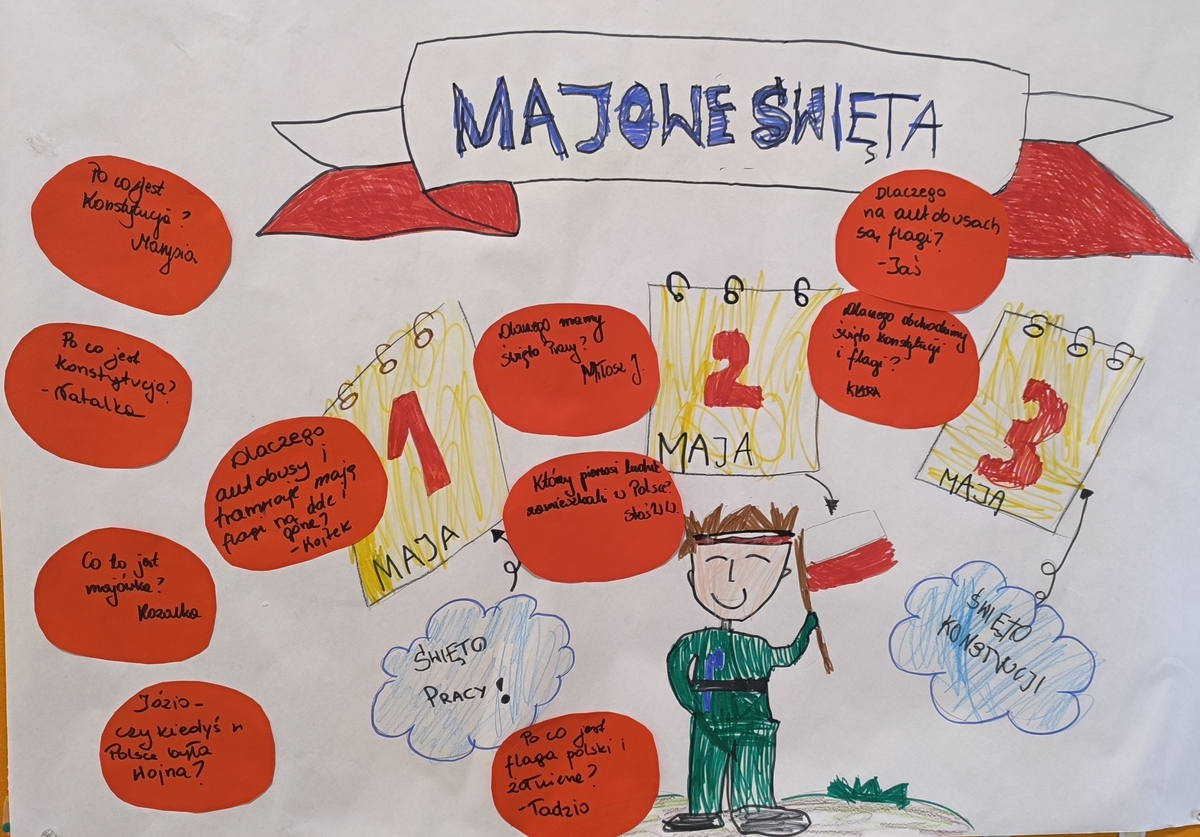 MAJOWE ŚWIĘTA
Po co jest
Konstytucja?
Marysia
Dlaczego
na autobusach
są flagi?
-Jaś
Po co jest
Konstytucja?
-Natalka
Dlaczego mamy
święto Pracy?
Miłosz J.
2
MAJA
Dlaczego obchodzimy
święto Konstytucji
i flagi?
KLARA
3
MAJA
1
MAJA
Dlaczego
autobusy i
tramwaje mają
flagi na
górze?
-Kojtek
Który pierwsi ludzie
zamieszkali w Polsce?
Staś W.
Co to jest
majówka?
Rozalka
ŚWIĘTO
PRACY!
ŚWIĘTO
KONSTYUCJI
Józio-
czy kiedyś w
Polsce była
wojna?
Po co jest
flaga polski i
żołnierze?
-Tadzio